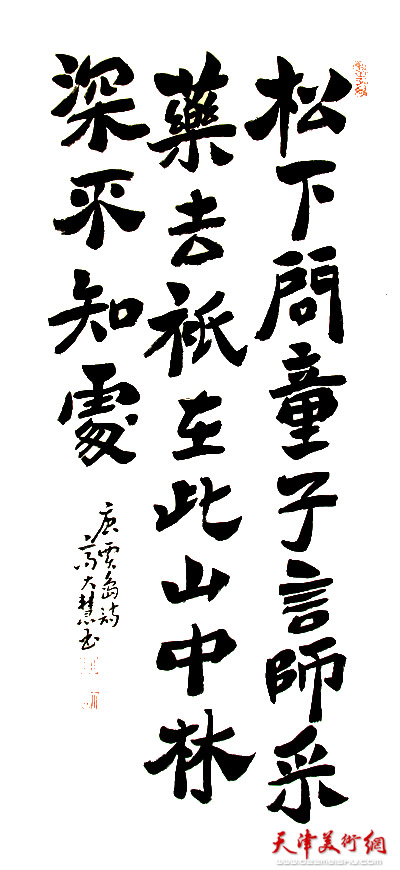 松下問童子言師采
藥去祗在此山中林
深不知處
唐賈島詩
大慧书
天津美術網